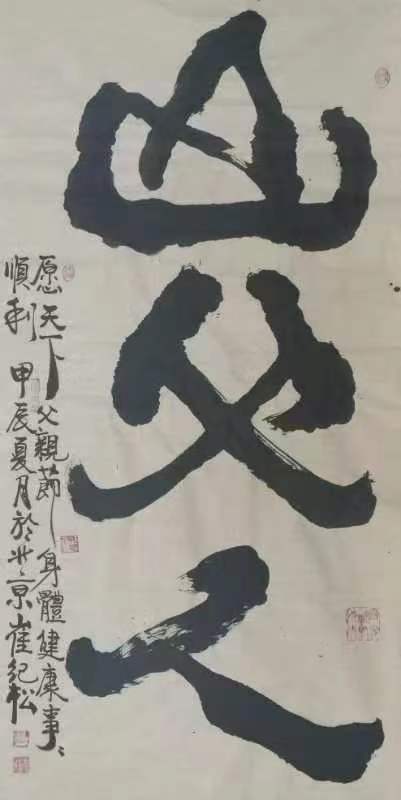 山父人
愿天下父親節身體健康事〻
順利 甲辰夏月於北京崔紀松